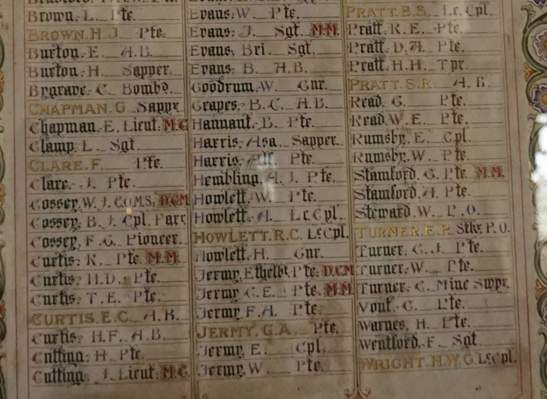 Brown. L. Pte.
BROWN. H.J. Pte.
Burton. E. A.B.
Burton. H. Sapper.
Bygrave. C. Bombd.
CHAPMAN. G. Sappr.
Chapman. E. Lieut. M.C
Clamp. L. Sgt.
CLARE. F. Pte.
Clare. J. Pte.
Cossey. W.J. C.Q.M.S. D.C.M.
Cossey. B.J. Cpl. Farr
Cossey. F.G. Pioneer.
Curtis. R. Pte. M.M
Curtis. H.D. Pte.
Curtis. T.E. Pte.
CURTIS. E.C. A.B.
Curtis. H.F. A.B.
Cutting. H. Pte.
Cutting. J. Lieut. M.C
Evans. W. Pte.
Evans. J. Sgt. M.M.
Evans. Bri. Sgt.
Evans. B. A.B.
Goodrum. W. Gnr.
Grapes. B.C. A.B.
Hannant. B. Pte.
Harris. Asa. Sapper.
Harris. Alf. Pte.
Hembling. A.J. Pte.
Howlett. W. Pte.
Howlett. A. Lc Cpl.
HOWLETT. R.C. Lc Cpl.
Howlett. H. Gnr.
Jermy. Ethelbt Pte. D.C.M.
Jermy C.E. Pte. M.M
Jermy F.A. Pte.
JERMY. G.A. Pte.
Jermy. E. Cpl.
Jermy. W. Pte.
PRATT. B.S. Lc. Cpl.
Pratt. R.E. Pte.
Pratt. D.A. Pte.
Pratt. H.H. Tpr.
PRATT. S.R. A.B.
Read. G. Pte.
Read. W.E. Pte.
Rumsby. E. Cpl.
Rumsby. W. Pte.
Stamford. G. Pte. M.M.
Stamford. A. Pte.
Steward. W. P.O.
TURNER. E.P. Stkr P.O.
Turner. G.J. Pte.
Turner. W. Pte.
Turner. G. Mine Swpr.
Vout. G. Pte.
Warnes. H. Pte.
Wentford. F. Sgt
WRIGHT. H.W.G. Lc Cpl.